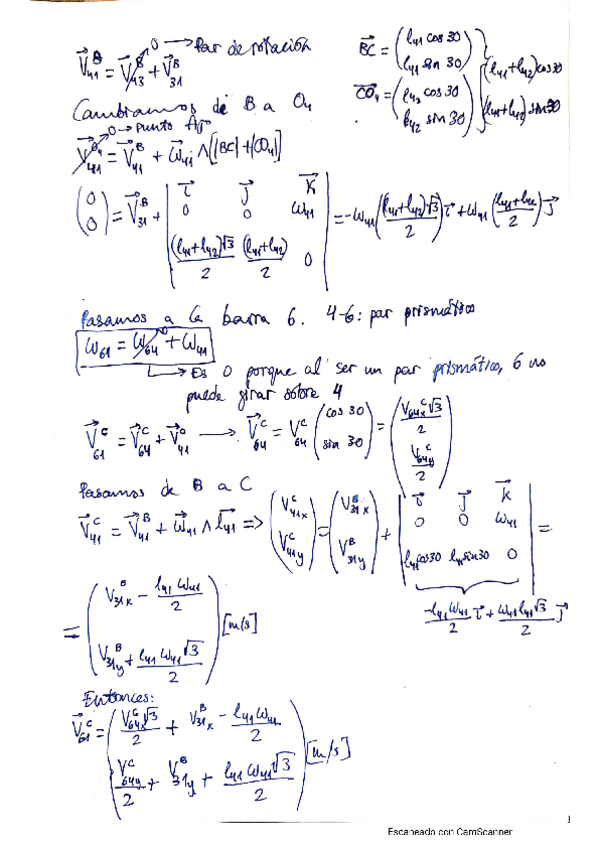 V⃗₄₁ᴮ = V⃗₄₃ᴮ + V⃗₃₁ᴮ 0 → Par de rotación
BC⃗ = (l₄₁ cos 30 / l₄₁ sin 30)
CO₄⃗ = (l₄₂ cos 30 / l₄₂ sin 30) } (l₄₁+l₄₂)cos30 / (l₄₁+l₄₂) sin30
Cambiamos de B a O₄
0 → Punto fijo
V⃗₄₁^O₄ = V⃗₄₁ᴮ + ω⃗₄₁ ∧ [|BC| + |CO₄|]
(0 / 0) = V⃗₃₁ᴮ + | i⃗ j⃗ k⃗ / 0 0 ω₄₁ / (l₄₁+l₄₂)√3/2 (l₄₁+l₄₂)/2 0 | = -ω₄₁((l₄₁+l₄₂)√3/2) i⃗ + ω₄₁((l₄₁+l₄₂)/2) j⃗
Pasamos a la barra 6. 4-6: par prismático
ω₆₁ = ω₆₄ + ω₄₁ 0
→ Es 0 porque al ser un par prismático, 6 no
puede girar sobre 4
V⃗₆₁ᶜ = V⃗₆₄ᶜ + V⃗₄₁ᶜ → V⃗₆₄ᶜ = V₆₄ᶜ (cos 30 / sin 30) = (V₆₄ₓᶜ√3/2 / V₆₄yᶜ/2)
Pasamos de B a C
V⃗₄₁ᶜ = V⃗₄₁ᴮ + ω⃗₄₁ ∧ l₄₁⃗ => (V₄₁ₓᶜ / V₄₁yᶜ) = (V₃₁ₓᴮ / V₃₁yᴮ) + | i⃗ j⃗ k⃗ / 0 0 ω₄₁ / l₄₁cos30 l₄₁sin30 0 | =
-l₄₁ω₄₁/2 i⃗ + ω₄₁l₄₁√3/2 j⃗
= (V₃₁ₓᴮ - l₄₁ω₄₁/2 / V₃₁yᴮ + l₄₁ω₄₁√3/2) [m/s]
Entonces:
V⃗₆₁ᶜ = (V₆₄ₓᶜ√3/2 + V₃₁ₓᴮ - l₄₁ω₄₁/2 / V₆₄yᶜ/2 + V₃₁yᴮ + l₄₁ω₄₁√3/2) [m/s]
Escaneado con CamScanner